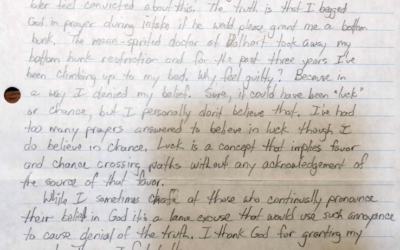 later feel convicted about this. The truth is that I begged
God in prayer during intake if he would please grant me a bottom
bunk. The mean-spirited doctor of Dalhart took away my
bottom bunk restriction and for the past three years I've
been climbing up to my bed. Why feel guilty? Because in
a way I denied my belief. Sure, it could have been "luck"
or chance, but I personally don't believe that. I've had
too many prayers answered to believe in luck though I
do believe in chance. Luck is a concept that implies favor
and chance crossing paths without any acknowledgement of
the source of that favor.
While I sometimes chaffe at those who continually pronounce
their belief in God it's a lame excuse that would use such annoyance
to cause denial of the truth. I thank God for granting my